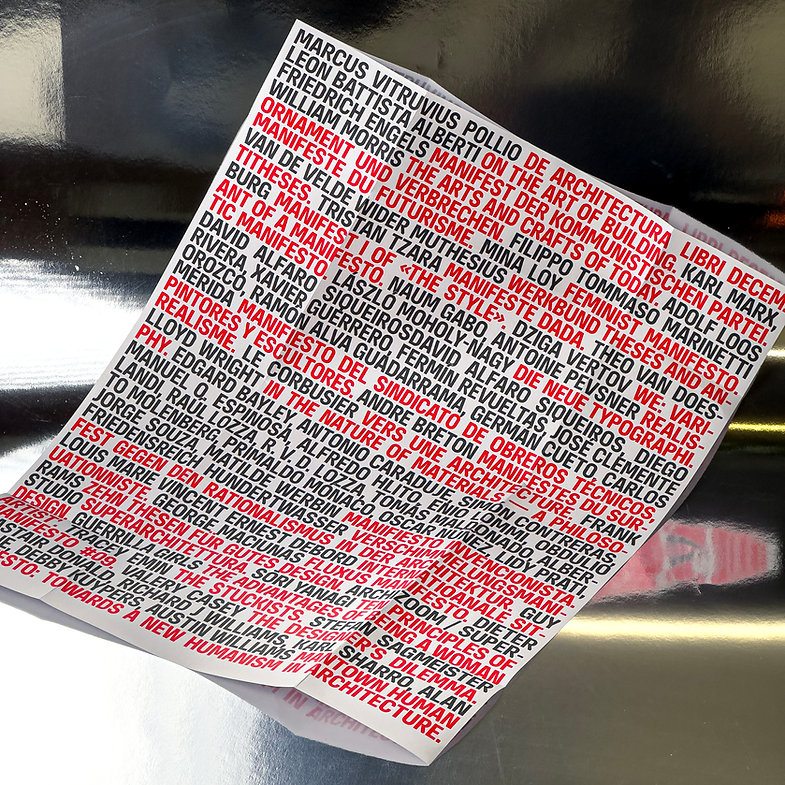 MARCUS VITRUVIUS POLLIO DE ARCHITECTURA LIBRI DECEM
LEON BATTISTA ALBERTI ON THE ART OF BUILDING, KARL MARX
FRIEDRICH ENGELS MANIFEST DER KOMMUNISTISCHEN PARTEI.
WILLIAM MORRIS THE ARTS AND CRAFTS OF TODAY. ADOLF LOOS
ORNAMENT UND VERBRECHEN. FILIPPO TOMMASO MARINETTI
MANIFESTE DU FUTURISME. MINA LOY FEMINIST MANIFESTO.
VAN DE VELDE WIDER MUTHESIUS WERKBUND THESES AND AN-
TITHESES. TRISTAN TZARA MANIFESTE DADA. THEO VAN DOES-
BURG MANIFEST I OF «THE STYLE». DZIGA VERTOV WE. VARI-
ANT OF A MANIFESTO. NAUM GABO, ANTOINE PEVSNER REALIS-
TIC MANIFESTO. LÁSZLÓ MOHOLY-NAGY DIE NEUE TYPOGRAPHI
DAVID ALFARO SIQUEIROSDAVID ALFARO SIQUEIROS, DIEGO
RIVERA, XAVIER GUERRERO, FERMIN REVUELTAS, JOSÉ CLEMENTE
OROZCO, RAMON ALVA GUADARRAMA, GERMAN CUETO, CARLOS
MERIDA MANIFIESTO DEL SINDICATO DE OBREROS TÉCNICOS
PINTORES Y ESCULTORES. ANDRE BRETON MANIFESTES DU SUR-
REALISME. LE CORBUSIER VERS UNE ARCHITECTURE. FRANK
LLOYD WRIGHT IN THE NATURE OF MATERIALS — A PHILOSO-
PHY. EDGARD BAILEY, ANTONIO CARADUJE, SIMÓN CONTRERAS
MANUEL O. ESPINOSA, ALFREDO HLITO, ENIO IOMMI, OBDULIO
LANDI, RAUL LOZZA, R. V. D. LOZZA, TOMÁS MALDONADO, ALBER-
TO MOLENBERG, PRIMALDO MONACO, OSCAR NÚÑEZ, LIDY PRATI,
JORGE SOUZA, MATILDE WERBIN MANIFIESTO INVENCIONISTA.
FRIEDENSREICH HUNDERTWASSER VERSCHIMMELUNGSMANI-
FEST GEGEN DEN RATIONALISMUS IN DER ARCHITEKTUR. GUY
LOUIS MARIE VINCENT ERNEST DEBORD INTERNATIONALE SIT-
UATIONNISTE. GEORGE MACIUNAS FLUXUS MANIFESTO. DIETER
RAMS ZEHN THESEN FÜR GUTES DESIGN. ARCHIZOOM / SUPER-
STUDIO SUPERARCHITETTURA. SORI YANAGI THE PRINCIPLES OF
DESIGN. GUERRILLA GIRLS THE ADVANTAGES OF BEING A WOMAN
TRACEY EMIN THE STUCKISTS. STEFAN SAGMEISTER
MANIFESTO #09. VALERY CASEY THE DESIGNER'S DILEMMA.
DONALD, RICHARD J WILLIAMS, KARL SHARRO, ALAN
KUYPERS, AUSTIN WILLIAMS MANTOWN HUMAN
ESTO. TOWARDS A NEW HUMANISM IN ARCHITECTURE.